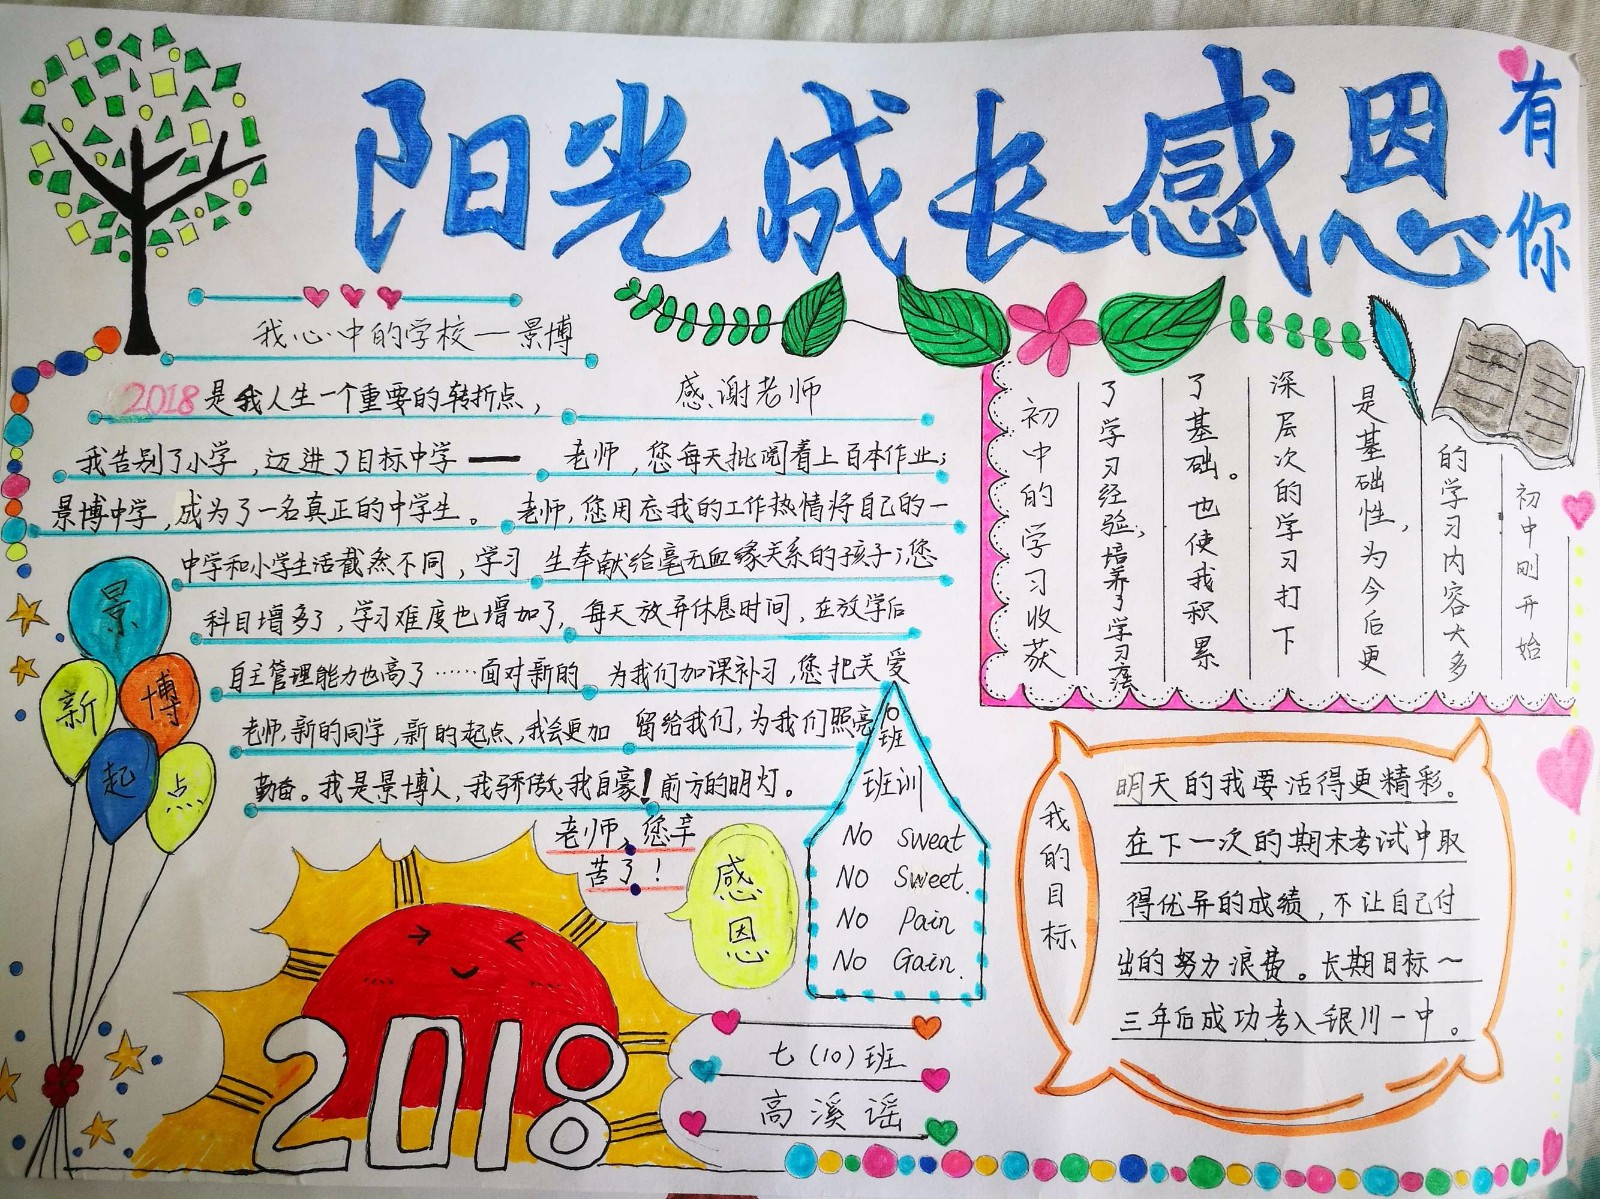 阳光成长感恩
有你
我心中的学校一景博
2018是我人生一个重要的转折点，
我告别了小学，迈进了目标中学——
景博中学，成为了一名真正的中学生。
中学和小学生活截然不同，学习
科目增多了，学习难度也增加了，
自主管理能力也高了……面对新的
老师，新的同学，新的起点，我会更加
勤奋。我是景博人，我骄傲，我自豪！
感谢老师
老师，您每天批阅着上百本作业；
老师，您用忘我的工作热情将自己的一
生奉献给毫无血缘关系的孩子；您
每天放弃休息时间，在放学后
为我们加课补习，您把关爱
留给我们，为我们照亮
前方的明灯。
老师，您辛
苦了！
初中的学习收获
初中刚开始
的学习内容大多
是基础性，为今后更
深层次的学习打下
了基础。也使我积累
了学习经验；培养了学习
景
新
博
起
点
感恩
10班
班训
No sweat
No Sweet.
No Pain
No Gain.
我的目标
明天的我要活得更精彩。
在下一次的期末考试中取
得优异的成绩，不让自己付
出的努力浪费。长期目标～
三年后成功考入银川一中。
2018
七（10）班
高溪谣